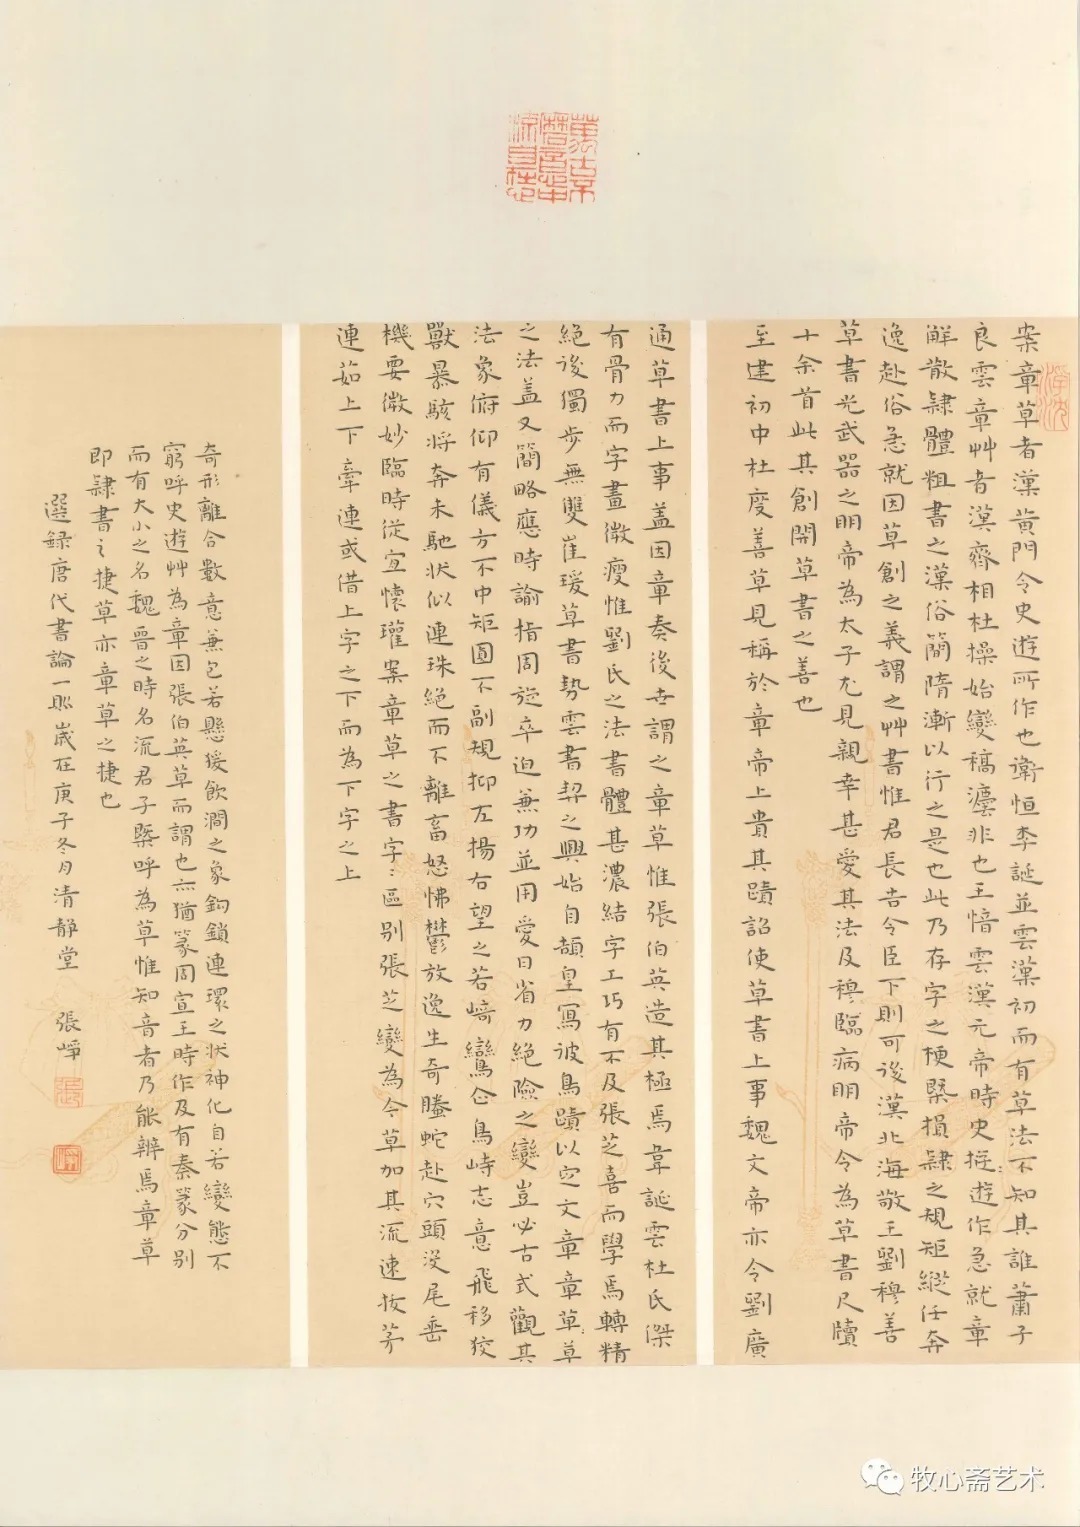 案章草者漢黄門令史遊所作也衛恒李誕並雲漢初而有草法不知其誰蕭子
良雲章艸者漢齊相杜操始變稿灋非也王愔雲漢元帝時史遊作急就章
解散隸體粗書之漢俗簡隋漸以行之是也此乃存字之梗槩損隸之規矩縱任奔
逸赴俗急就因草創之義謂之艸書惟君長告令臣下則可後漢北海敬王劉穆善
草書光武器之明帝為太子尤見親幸甚愛其法及穆臨病明帝令為草書尺牘
十余首此其創開草書之善也
至建初中杜度善草見稱於章帝上貴其蹟詔使草書上事魏文帝亦令劉廣
通草書上事蓋因章奏後世謂之章草惟張伯英造其極焉韋誕雲杜氏傑
有骨力而字畫微瘦惟劉氏之法書體甚濃結字工巧有不及張芝喜而學焉轉精
絕後獨步無雙崔瑗草書勢雲書契之興始自頡皇寫彼鳥蹟以定文章章草草
之法蓋又簡略應時諭指周旋卒迫兼功並用愛日省力絕險之變豈必古式觀其
法象俯仰有儀方不中矩圓不副規抑左揚右望之若崎鸞企鳥峙志意飛移狡
獸暴駭將奔未馳狀似連珠絕而不離畜怒怫鬱放逸生奇螣蛇赴穴頭沒尾垂
機要微妙臨時從宜懷瓘案章草之書字字區别張芝變為今草加其流速拔茅
連茹上下牽連或借上字之下而為下字之上
奇形離合數意兼包若懸猨飲澗之象鈎鎖連環之狀神化自若變態不
窮呼史遊艸為章因張伯英草而謂也亦猶篆周宣王時作及有秦篆分别
而有大小之名魏晋之時名流君子槩呼為草惟知音者乃能辨焉章草
即隸書之捷草亦章草之捷也
選録唐代書論一則歲在庚子冬月清静堂 張崢
牧心斋艺术